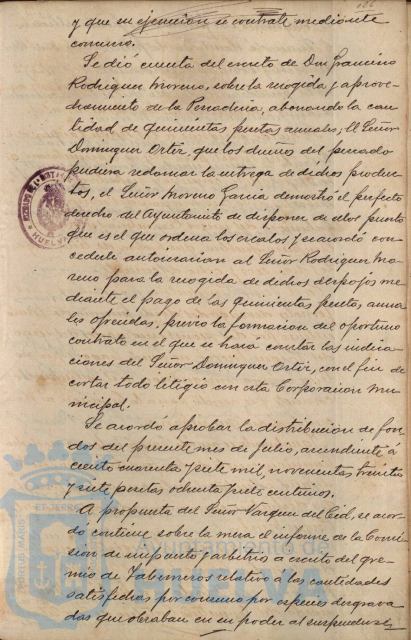 106
y que su ejecucion se contrate mediante
concurso.
Se dió cuenta del escrito de Don Francisco
Rodriguez Moreno, sobre la recogida y aprove-
chamiento de la Penaderia, abonando la can-
tidad de quinientas pesetas anuales, El Señor
Dominguez Ortiz, que los dueños del
pudiera reclamar la entrega de dichos produc-
tos, el Señor Moreno Garcia demostró el perfecto
derecho del Ayuntamiento de disponer de ellos puesto
que es el que ordena los y se acordó con-
cederle autorizacion al Señor Rodriguez Mo-
reno para la recogida de dichos despojos me-
diante el pago de las quinientas pesetas, anua-
les ofrecidas, previo la formacion del oportuno
contrato en el que se hará constar las indica-
ciones del Señor Dominguez Ortiz, con el fin de
cortar todo litigio con esta Corporacion Mu-
nicipal.
Se acordó aprobar la distribucion de fon-
dos del presente mes de Julio, ascendiente á
ciento cuarenta y siete mil, novecientas treinta
y siete pesetas ochenta y siete centimos.
A propuesta del Señor Vazquez del Cid, se acor-
dó continue sobre la mesa el informe de la Comi-
sion de impuestos y arbitrios á escrito del gre-
mio de Taberneros relativo á las cantidades
satisfechas por consumo por especies desgrava-
das que obraban en su poder al suspenderse
HUELVA